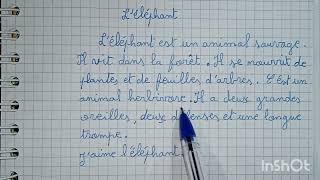 L'éléphant
L'éléphant est un animal sauvage.
Il vit dans la forêt. Il se nourrit de
plantes et de feuilles d'arbres. C'est un
animal herbivore. Il a deux grandes
oreilles, deux défenses et une longue
trompe.
J'aime l'éléphant
INSHOT